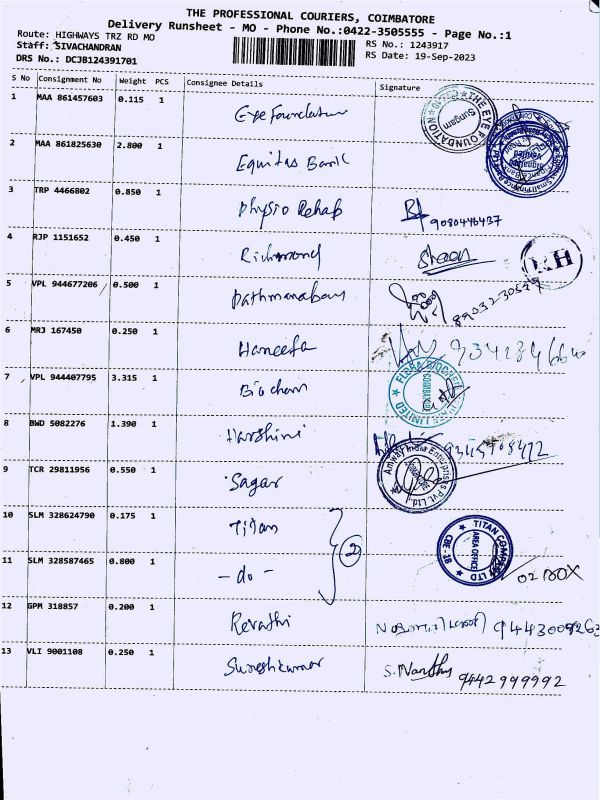 THE PROFESSIONAL COURIERS, COIMBATORE
Delivery Runsheet - MO - Phone No.:0422-3505555 - Page No.:1
Route: HIGHWAYS TRZ RD MO
RS No.: 1243917
Staff: SIVACHANDRAN
RS Date: 19-Sep-2023
DRS No.: DCJB124391701
S No Consignment No Weight PCS Consignee Details Signature
1 MAA 861457603 0.115 1 Eye Foundation THE EYE FOUNDATION
2 MAA 861825630 2.800 1 Equitas Bank
3 TRP 4466802 0.850 1 Physio Rehab 9080446437
4 RJP 1151652 0.450 1 Richmond
5 VPL 944677206 0.500 1 Pathmanaban
6 MRJ 167450 0.250 1 Haneefa
7 VPL 944407795 3.315 1 Biochem
8 BWD 5082276 1.390 1 Harshini
9 TCR 29811956 0.550 1 Sagar Amway India Enterprises Pvt. Ltd
10 SLM 328624790 0.175 1 Titan TITAN COMPANY LTD AREA OFFICE CBE-18
11 SLM 328587465 0.800 1 - do - 2 02 BOX
12 GPM 318857 0.200 1 Revathi
13 VLI 9001108 0.250 1 Sureshkumar 9442999992